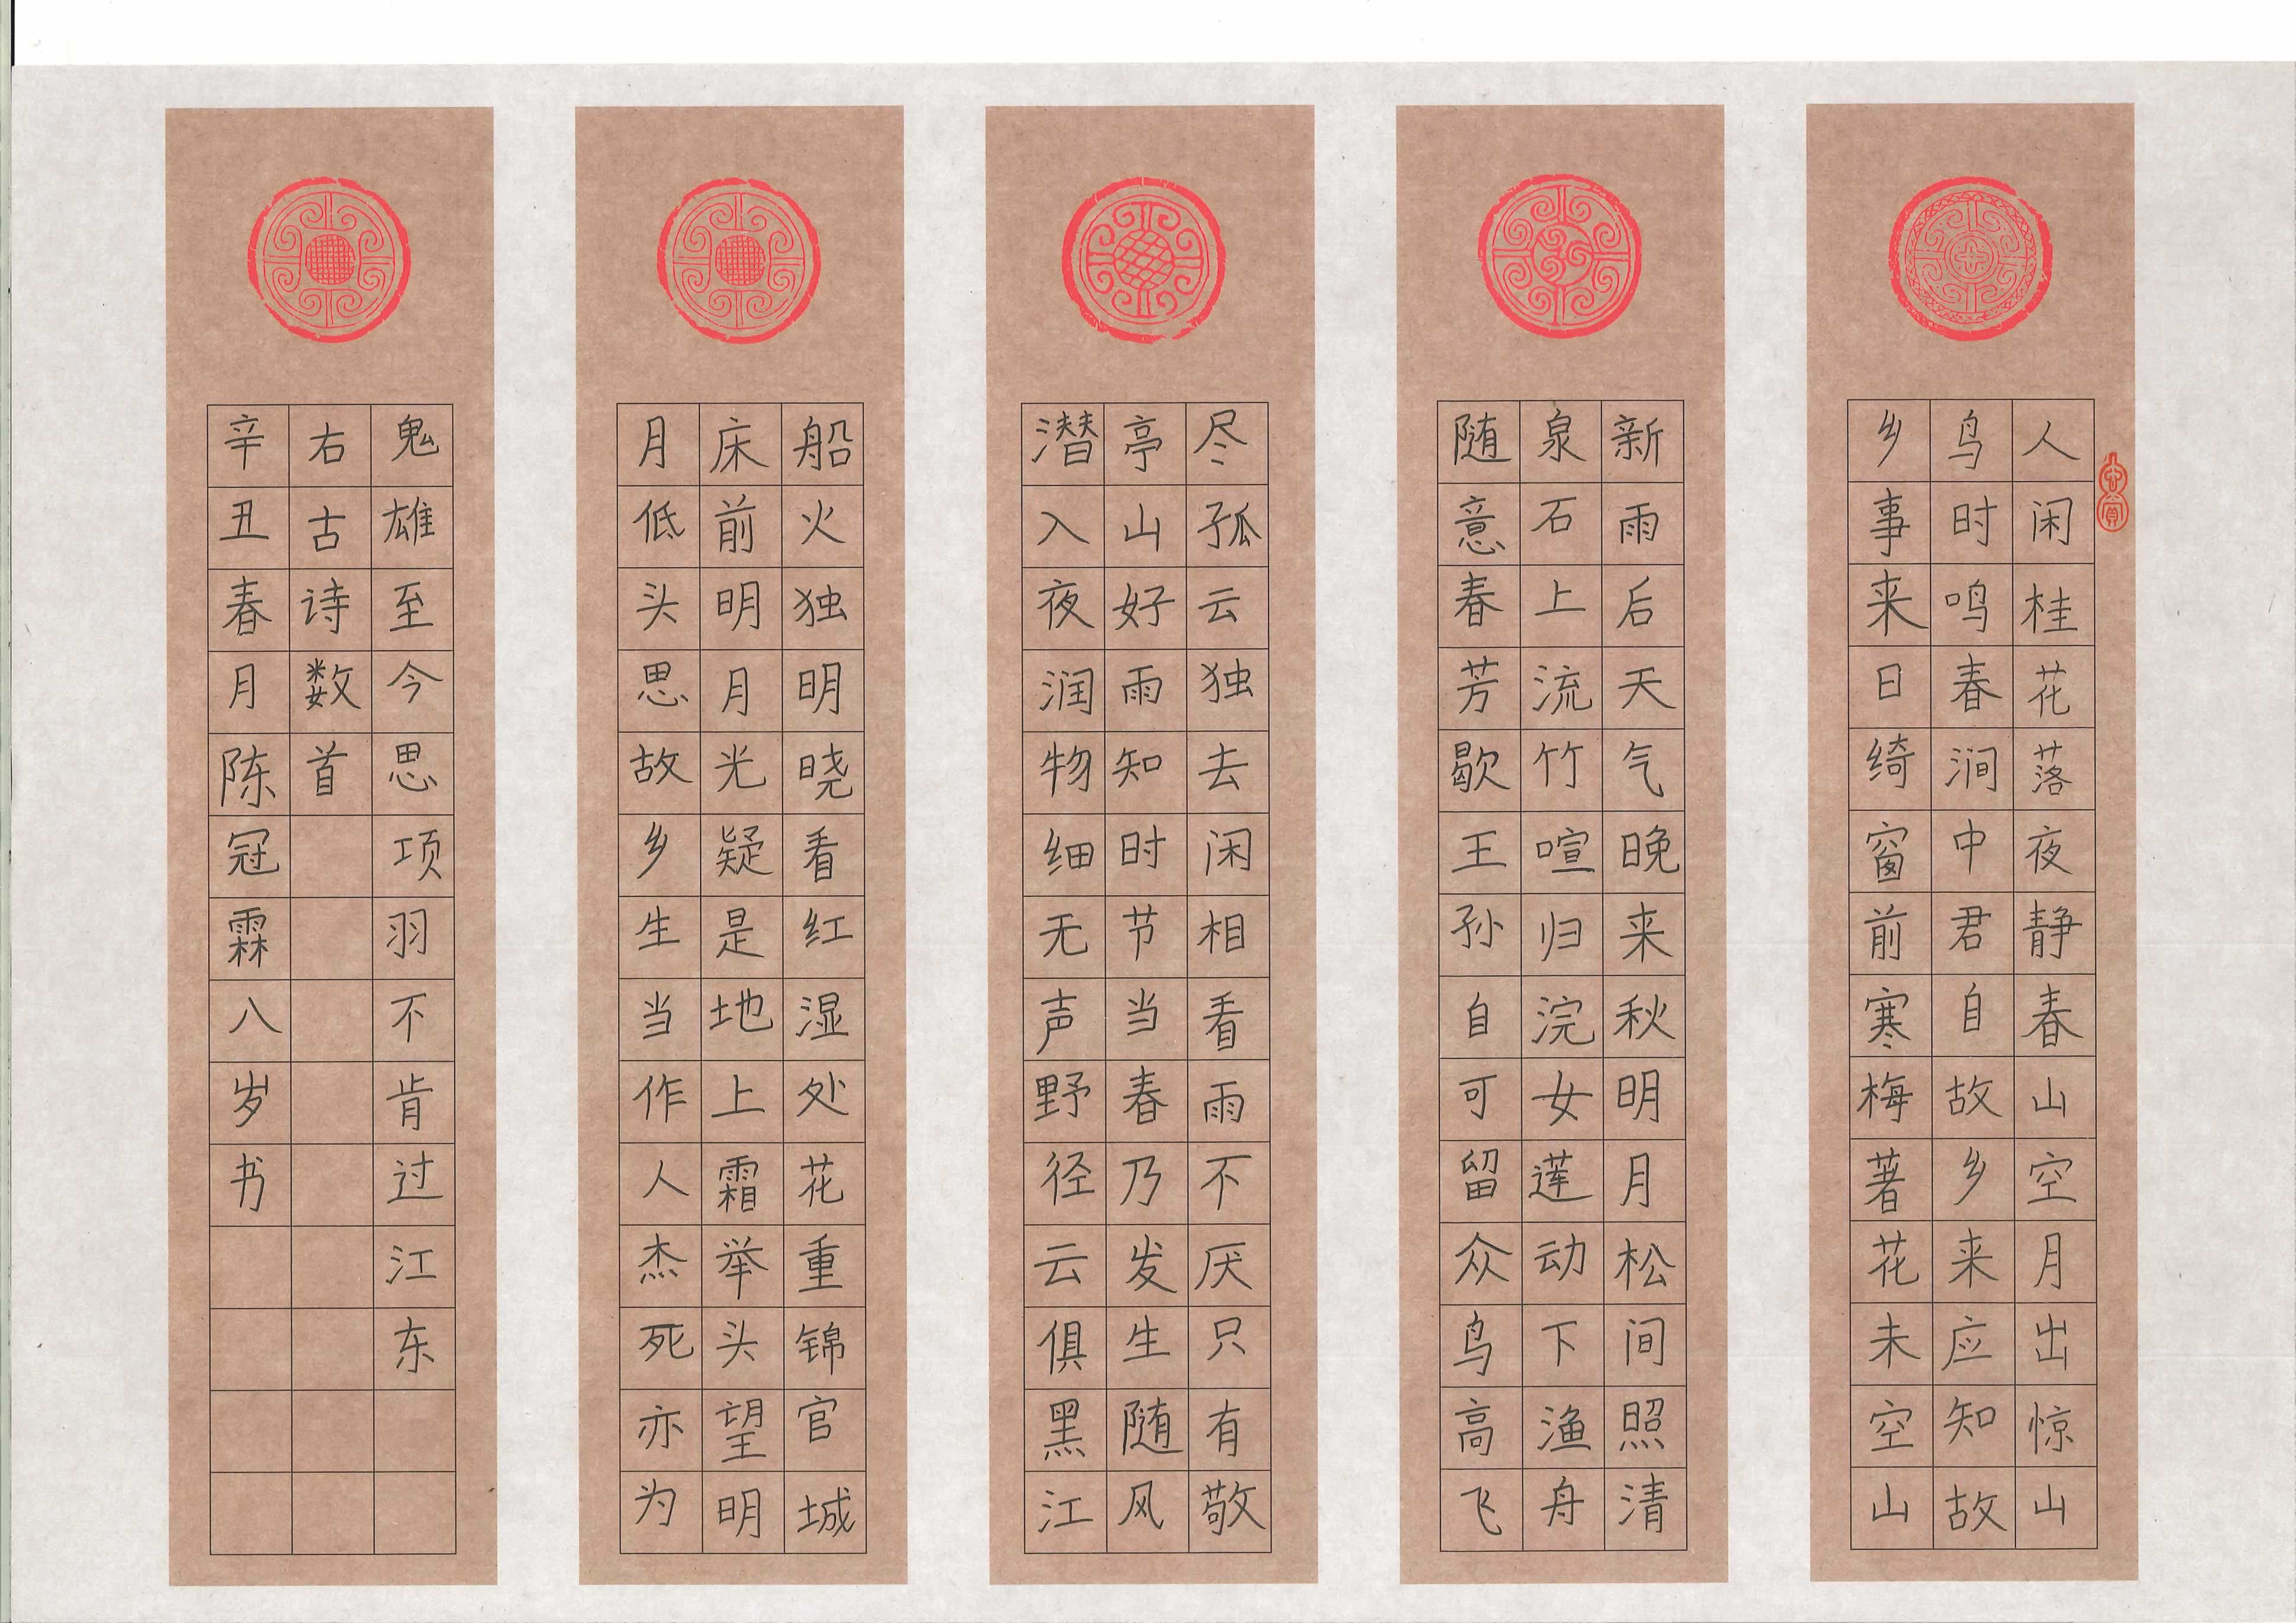 人闲桂花落夜静春山空月出惊山
鸟时鸣春涧中君自故乡来应知故
乡事来日绮窗前寒梅著花未空山
新雨后天气晚来秋明月松间照清
泉石上流竹喧归浣女莲动下渔舟
随意春芳歇王孙自可留众鸟高飞
尽孤云独去闲相看雨不厌只有敬
亭山好雨知时节当春乃发生随风
潜入夜润物细无声野径云俱黑江
船火独明晓看红湿处花重锦官城
床前明月光疑是地上霜举头望明
月低头思故乡生当作人杰死亦为
鬼雄至今思项羽不肯过江东
右古诗数首
辛丑春月陈冠霖八岁书